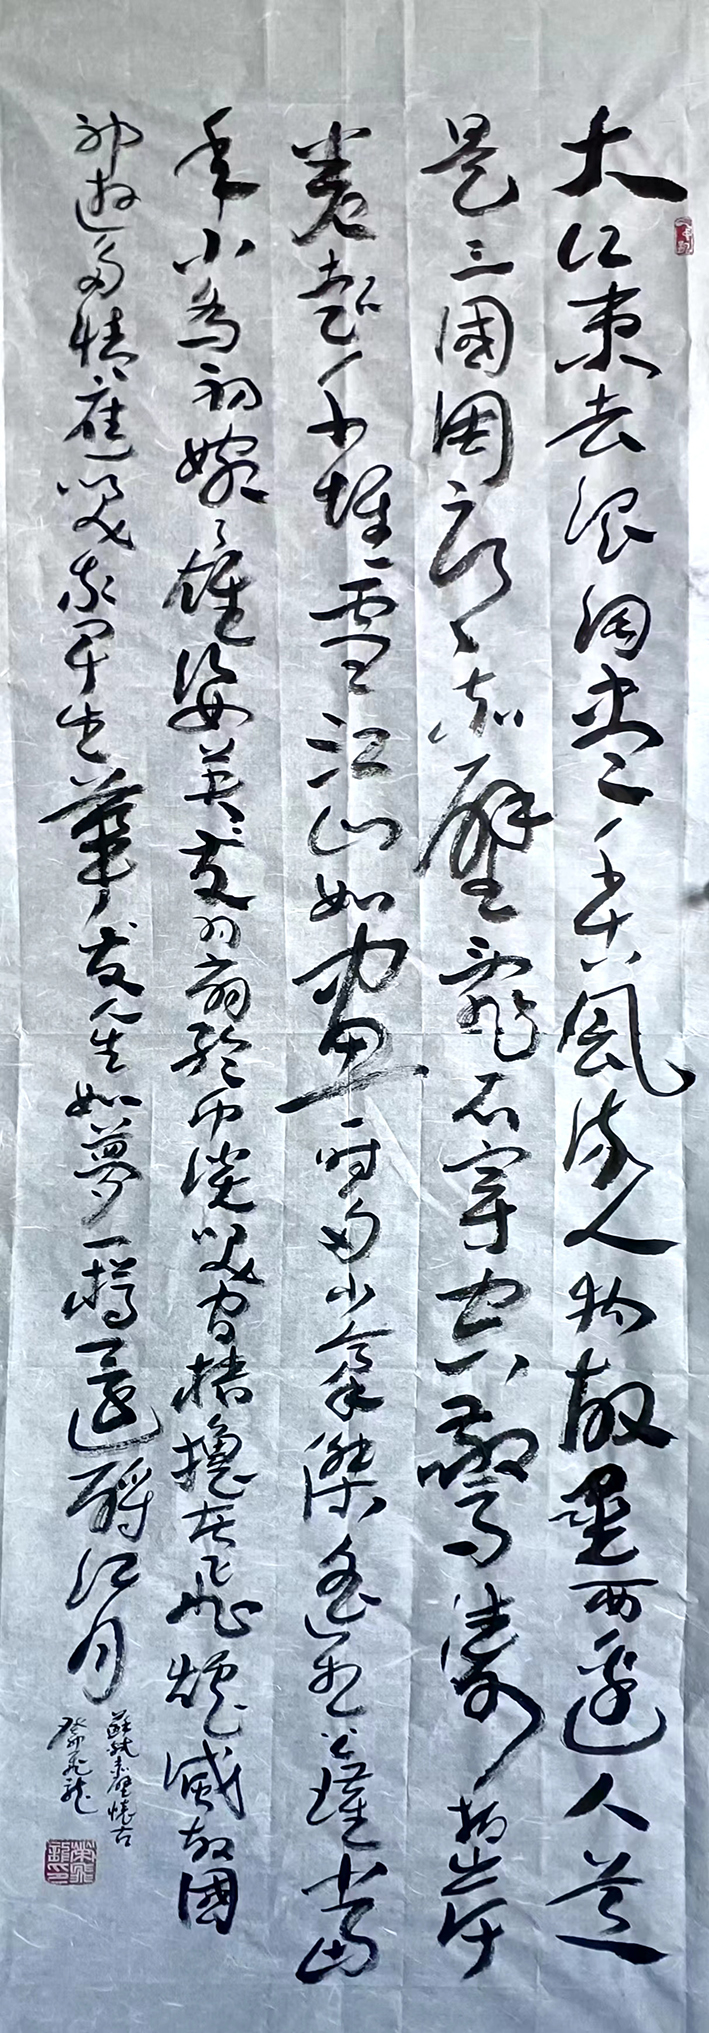 大江東去浪淘盡千古風流人物故壘西邊人道
是三國周郎赤壁亂石穿空驚濤拍岸
卷起千堆雪江山如畫一時多少豪傑遙想公瑾當
年小喬初嫁了雄姿英發羽扇綸巾談笑間檣櫓灰飛煙滅故國
神遊多情應笑我早生華髮人生如夢一樽還酹江月
蘇軾赤壁懷古
癸卯飛龍